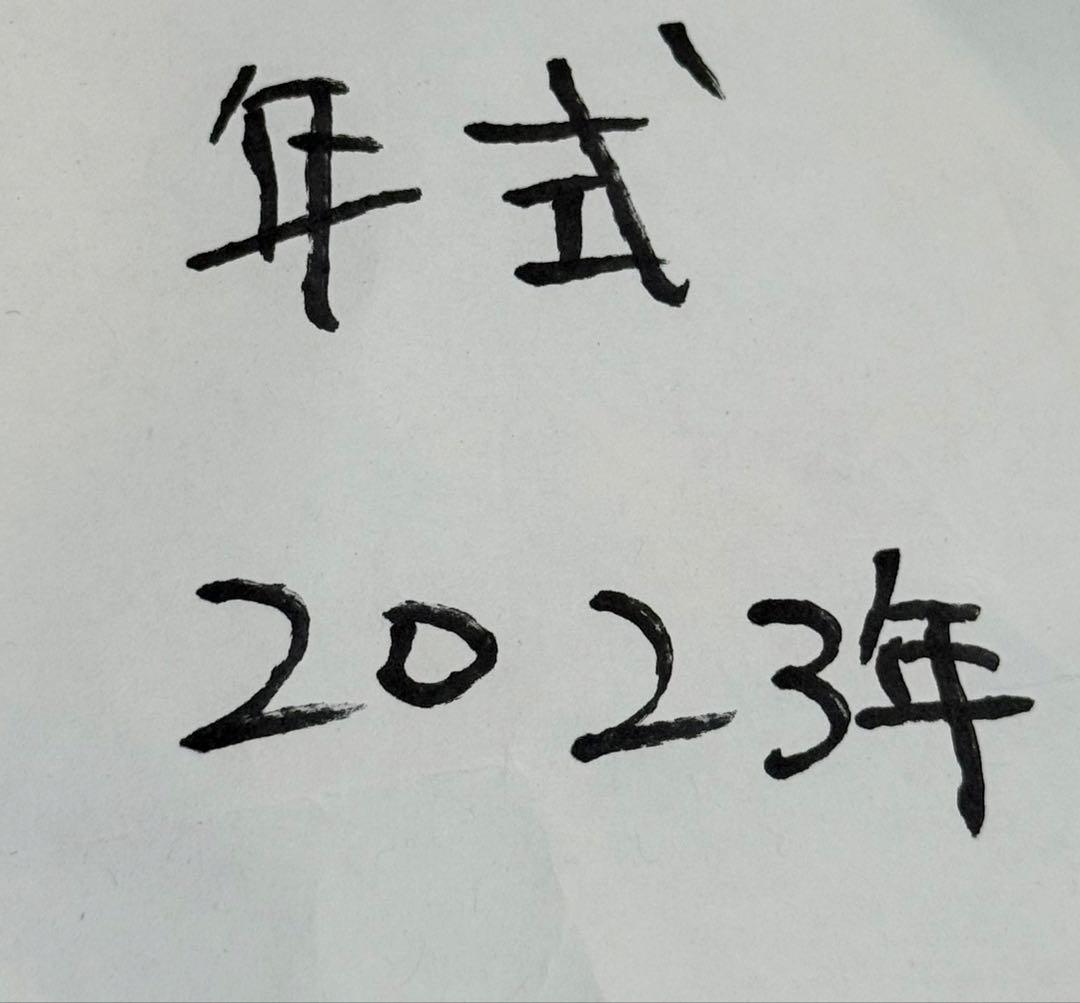 年式
2023年